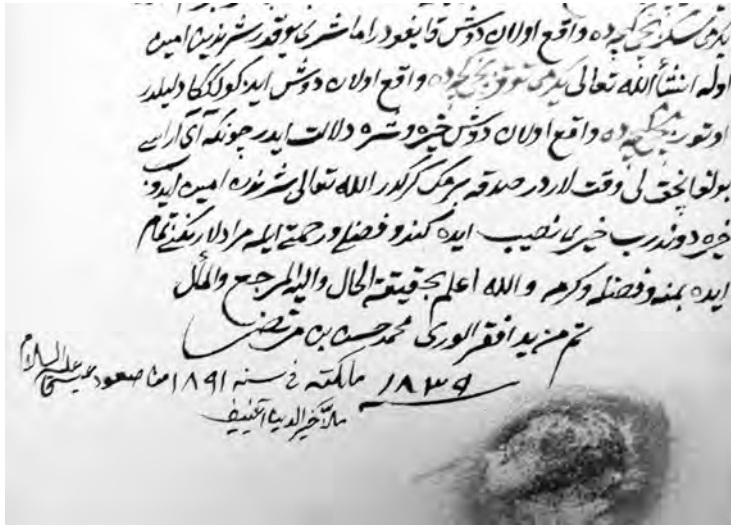 یکرمی سکزنجی کیچه ده واقع اولان دوش قایغودر اما شری یوقدر شرندین امین
اوله انشأالله تعالی یکرمی توقزنجی کیچه ده واقع اولان دوش ایذکولککا دلیلدر
اوتوزنجی کیچه ده واقع اولان دوش خیره و شره دلالت ایدر چونکه آی آراسی
بولغانحق لی وقت لاردر صدقه بیرمک کرکدر الله تعالی شرندن امین ایدوب
خیره دوندرب خیری نصیب ایده کندو فضلی و رحمتی ایله مرادلارنکزنی تمام
ایده بمنه و فضله و کرمه والله اعلم بحقیقة الحال والیه المرجع والمآل
تم من ید افقر الوری محمد حسن بن مرتضی
۱۸۳۹ مالکته فی سنه ۱۸۹۱ من صعود عیسی علیه السلام
ملا خیرالدین